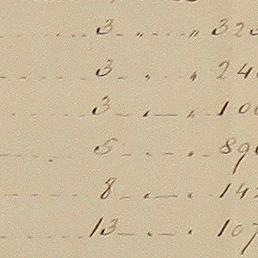 3 " " 32
3 " " 24
3 " " 10
5 " " 89
8 " " 14
13 " " 107